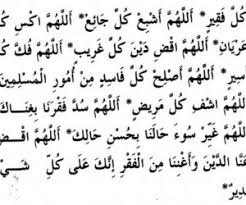 كُلَّ فَقِيرٍ * اَللَّهُمَّ اَشْبِعْ كُلَّ جَائِعٍ * اَللَّهُمَّ اكْسُ كُلَّ
عُرْيَانٍ * اَللَّهُمَّ اقْضِ دَيْنَ كُلِّ غَرِيبٍ * اَللَّهُمَّ فُكَّ كُلَّ
سِيرٍ * اَللَّهُمَّ اَصْلِحْ كُلَّ فَاسِدٍ مِنْ اُمُورِ الْمُسْلِمِينَ
اَللَّهُمَّ اشْفِ كُلَّ مَرِيضٍ * اَللَّهُمَّ سُدَّ فَقْرَنَا بِغِنَاكَ
اَللَّهُمَّ غَيِّرْ سُوءَ حَالَنَا بِحُسْنِ حَالِكَ * اَللَّهُمَّ اقْضِ
عَنَّا الدَّيْنَ وَاَغْنِنَا مِنَ الْفَقْرِ اِنَّكَ عَلَى كُلِّ شَيْ
دِيرٌ *